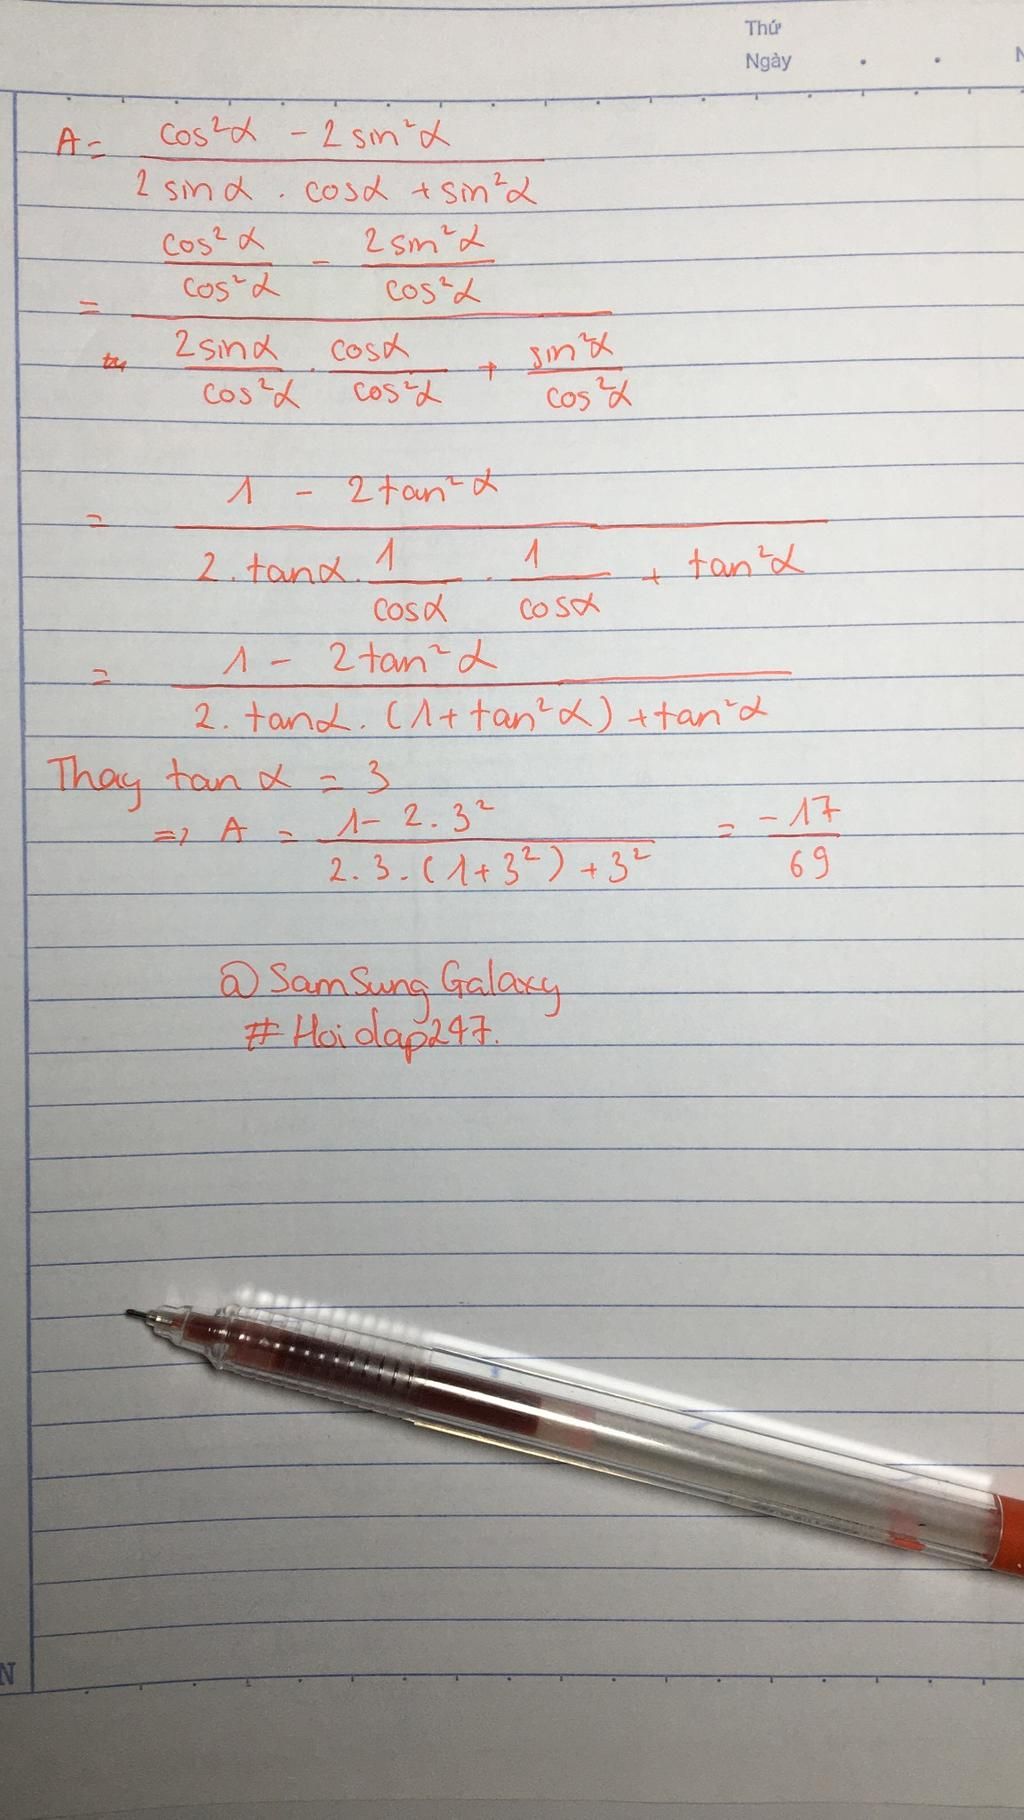 Thứ
Ngày
A = cos²α - 2 sin²α
2 sin α . cosα + sin²α
cos²α - 2 sin²α
cos²α cos²α
=
2 sinα . cosα + sin²α
cos²α cos²α cos²α
1 - 2 tan²α
=
2. tanα. 1 . 1 + tan²α
cosα cosα
= 1 - 2 tan²α
2. tanα. (1 + tan²α) + tan²α
Thay tan α = 3
=> A = 1 - 2.3² = -17
2.3.(1+3²) + 3² 69
@SamSung Galaxy
#Hoidap247.
N